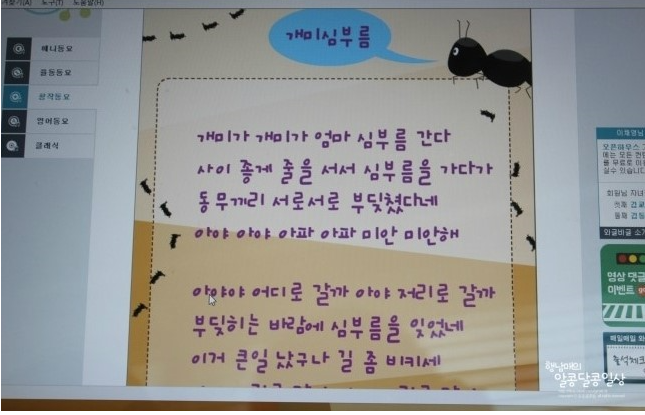 도구(T) 도움말(H)
개미심부름
매니동요
율동동요
창작동요
영어동요
클래식
개미가 개미가 엄마 심부름 간다
사이 좋게 줄을 서서 심부름을 가다가
동무끼리 서로서로 부딪쳤다네
아야 아야 아파 아파 미안 미안해
아야야 어디로 갈까 아야 저리로 갈까
부딪히는 바람에 심부름을 잊었네
이거 큰일 났구나 길 좀 비키세
회원님 자녀
첫째
둘째
와글바글 소
영상 댓글
이벤트
매일매일
출석체크
햇님매의
알콩달콩일상